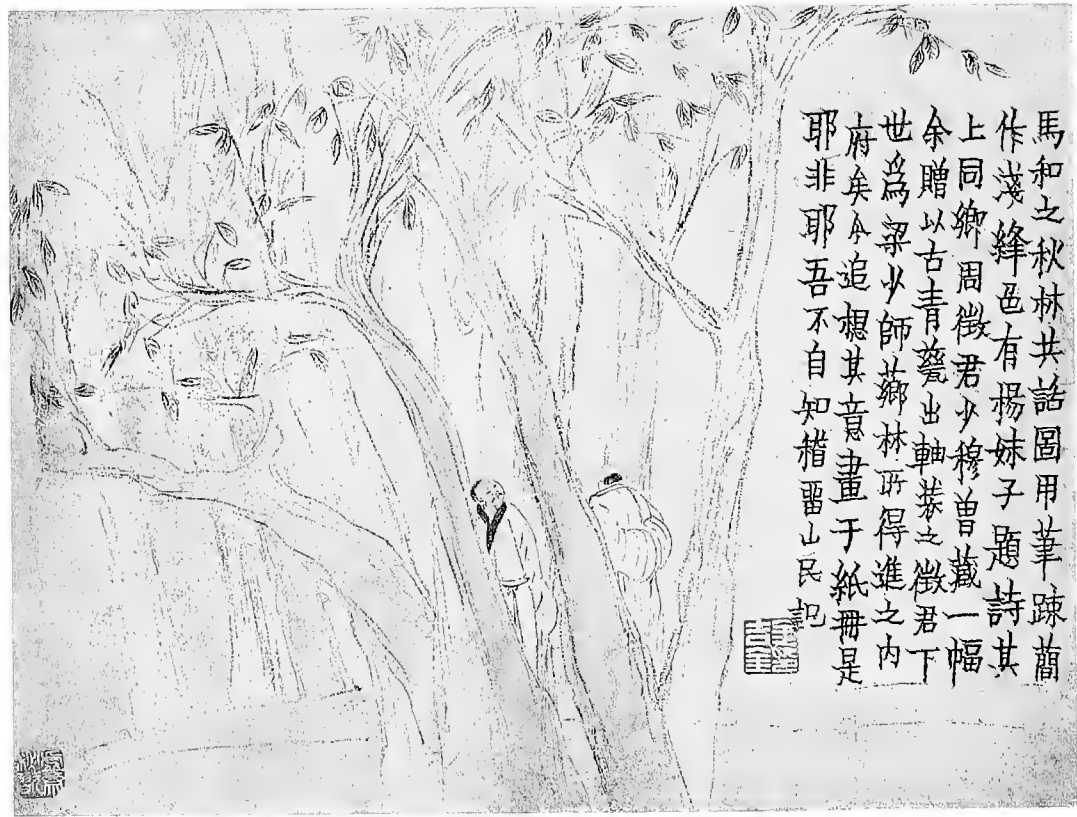 馬和之秋林共話圖用筆踈簡
作淺絳色有楊妹子題詩其
上同鄉周徵君少穆曾藏一幅
余贈以古青甆出軸裝之徵君下
世爲梁少師薌林所得進之內
府矣今追想其意畫于紙冊是
耶非耶吾不自知稽畱山民記